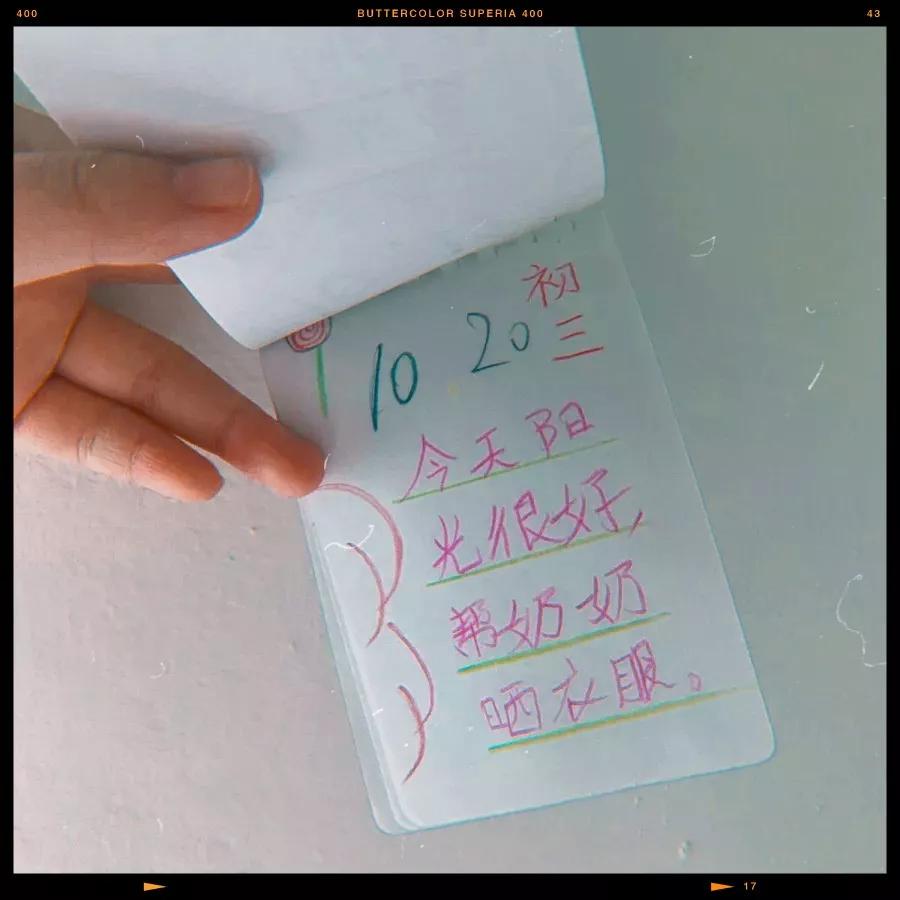 400 BUTTERCOLOR SUPERIA 400 43
10 20 初三
今天阳
光很好,
帮奶奶
晒衣服。
17